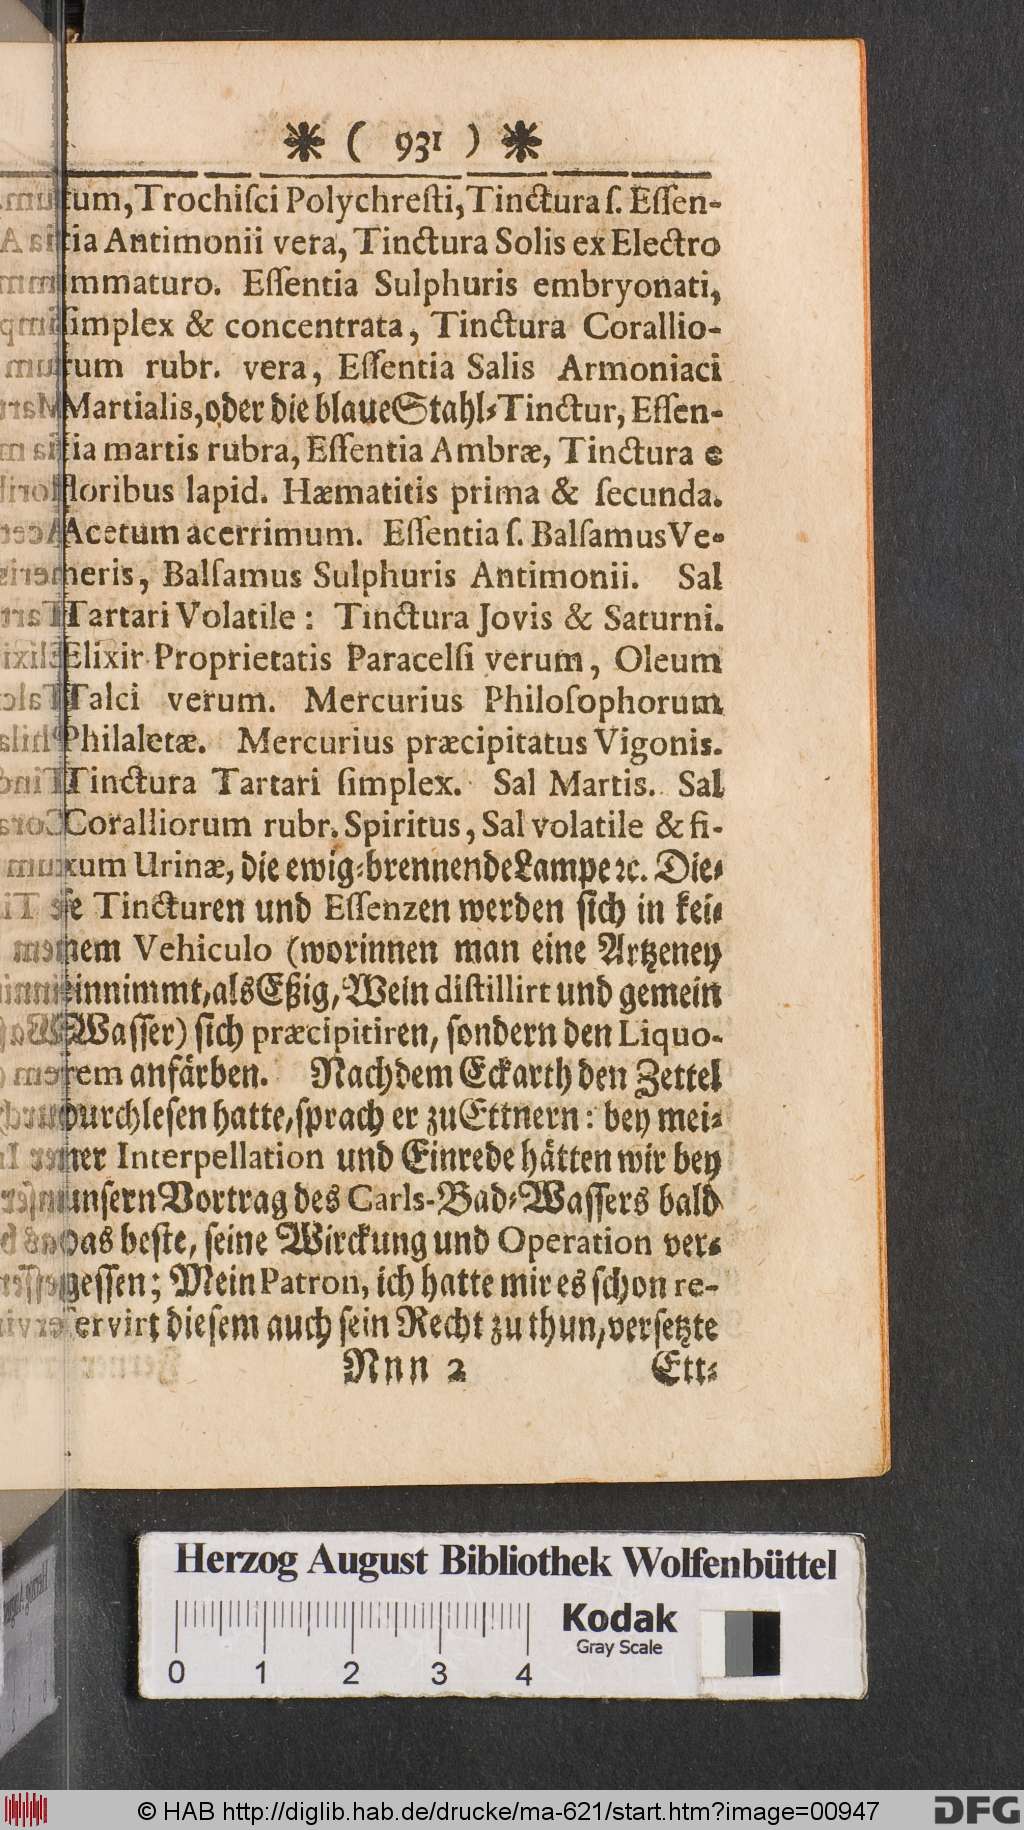 * ( 931 ) *
tum, Trochiſci Polychreſti, Tinctura ſ. Eſſen-
tia Antimonii vera, Tinctura Solis ex Electro
immaturo. Eſſentia Sulphuris embryonati,
ſimplex & concentrata, Tinctura Corallio-
rum rubr. vera, Eſſentia Salis Armoniaci
Martialis, oder die blaue Stahl-Tinctur, Eſſen-
tia martis rubra, Eſſentia Ambræ, Tinctura e
floribus lapid. Hæmatitis prima & ſecunda.
Acetum acerrimum. Eſſentia ſ. Balſamus Ve-
neris, Balſamus Sulphuris Antimonii. Sal
Tartari Volatile: Tinctura Jovis & Saturni.
Elixir Proprietatis Paracelſi verum, Oleum
Talci verum. Mercurius Philoſophorum
Philaletæ. Mercurius præcipitatus Vigonis.
Tinctura Tartari ſimplex. Sal Martis. Sal
Coralliorum rubr. Spiritus, Sal volatile & fi-
xum Urinæ, die ewig-brennende Lampe ꝛc. Die-
ſe Tincturen und Eſſenzen werden ſich in kei-
nem Vehiculo (worinnen man eine Artzeney
einnimmt, als Eßig, Wein diſtillirt und gemein
Waſſer) ſich præcipitiren, ſondern den Liquo-
rem anfärben. Nachdem Eckarth den Zettel
durchleſen hatte, ſprach er zu Ettnern: bey mei-
ner Interpellation und Einrede hätten wir bey
unſern Vortrag des Carls-Bad-Waſſers bald
das beſte, ſeine Wirckung und Operation ver-
geſſen; Mein Patron, ich hatte mir es ſchon re-
ſervirt dieſem auch ſein Recht zu thun, verſetzte
Nnn 2 Ett-
Herzog August Bibliothek Wolfenbüttel
Kodak
Gray Scale
0 1 2 3 4
© HAB http://diglib.hab.de/drucke/ma-621/start.htm?image=00947
DFG